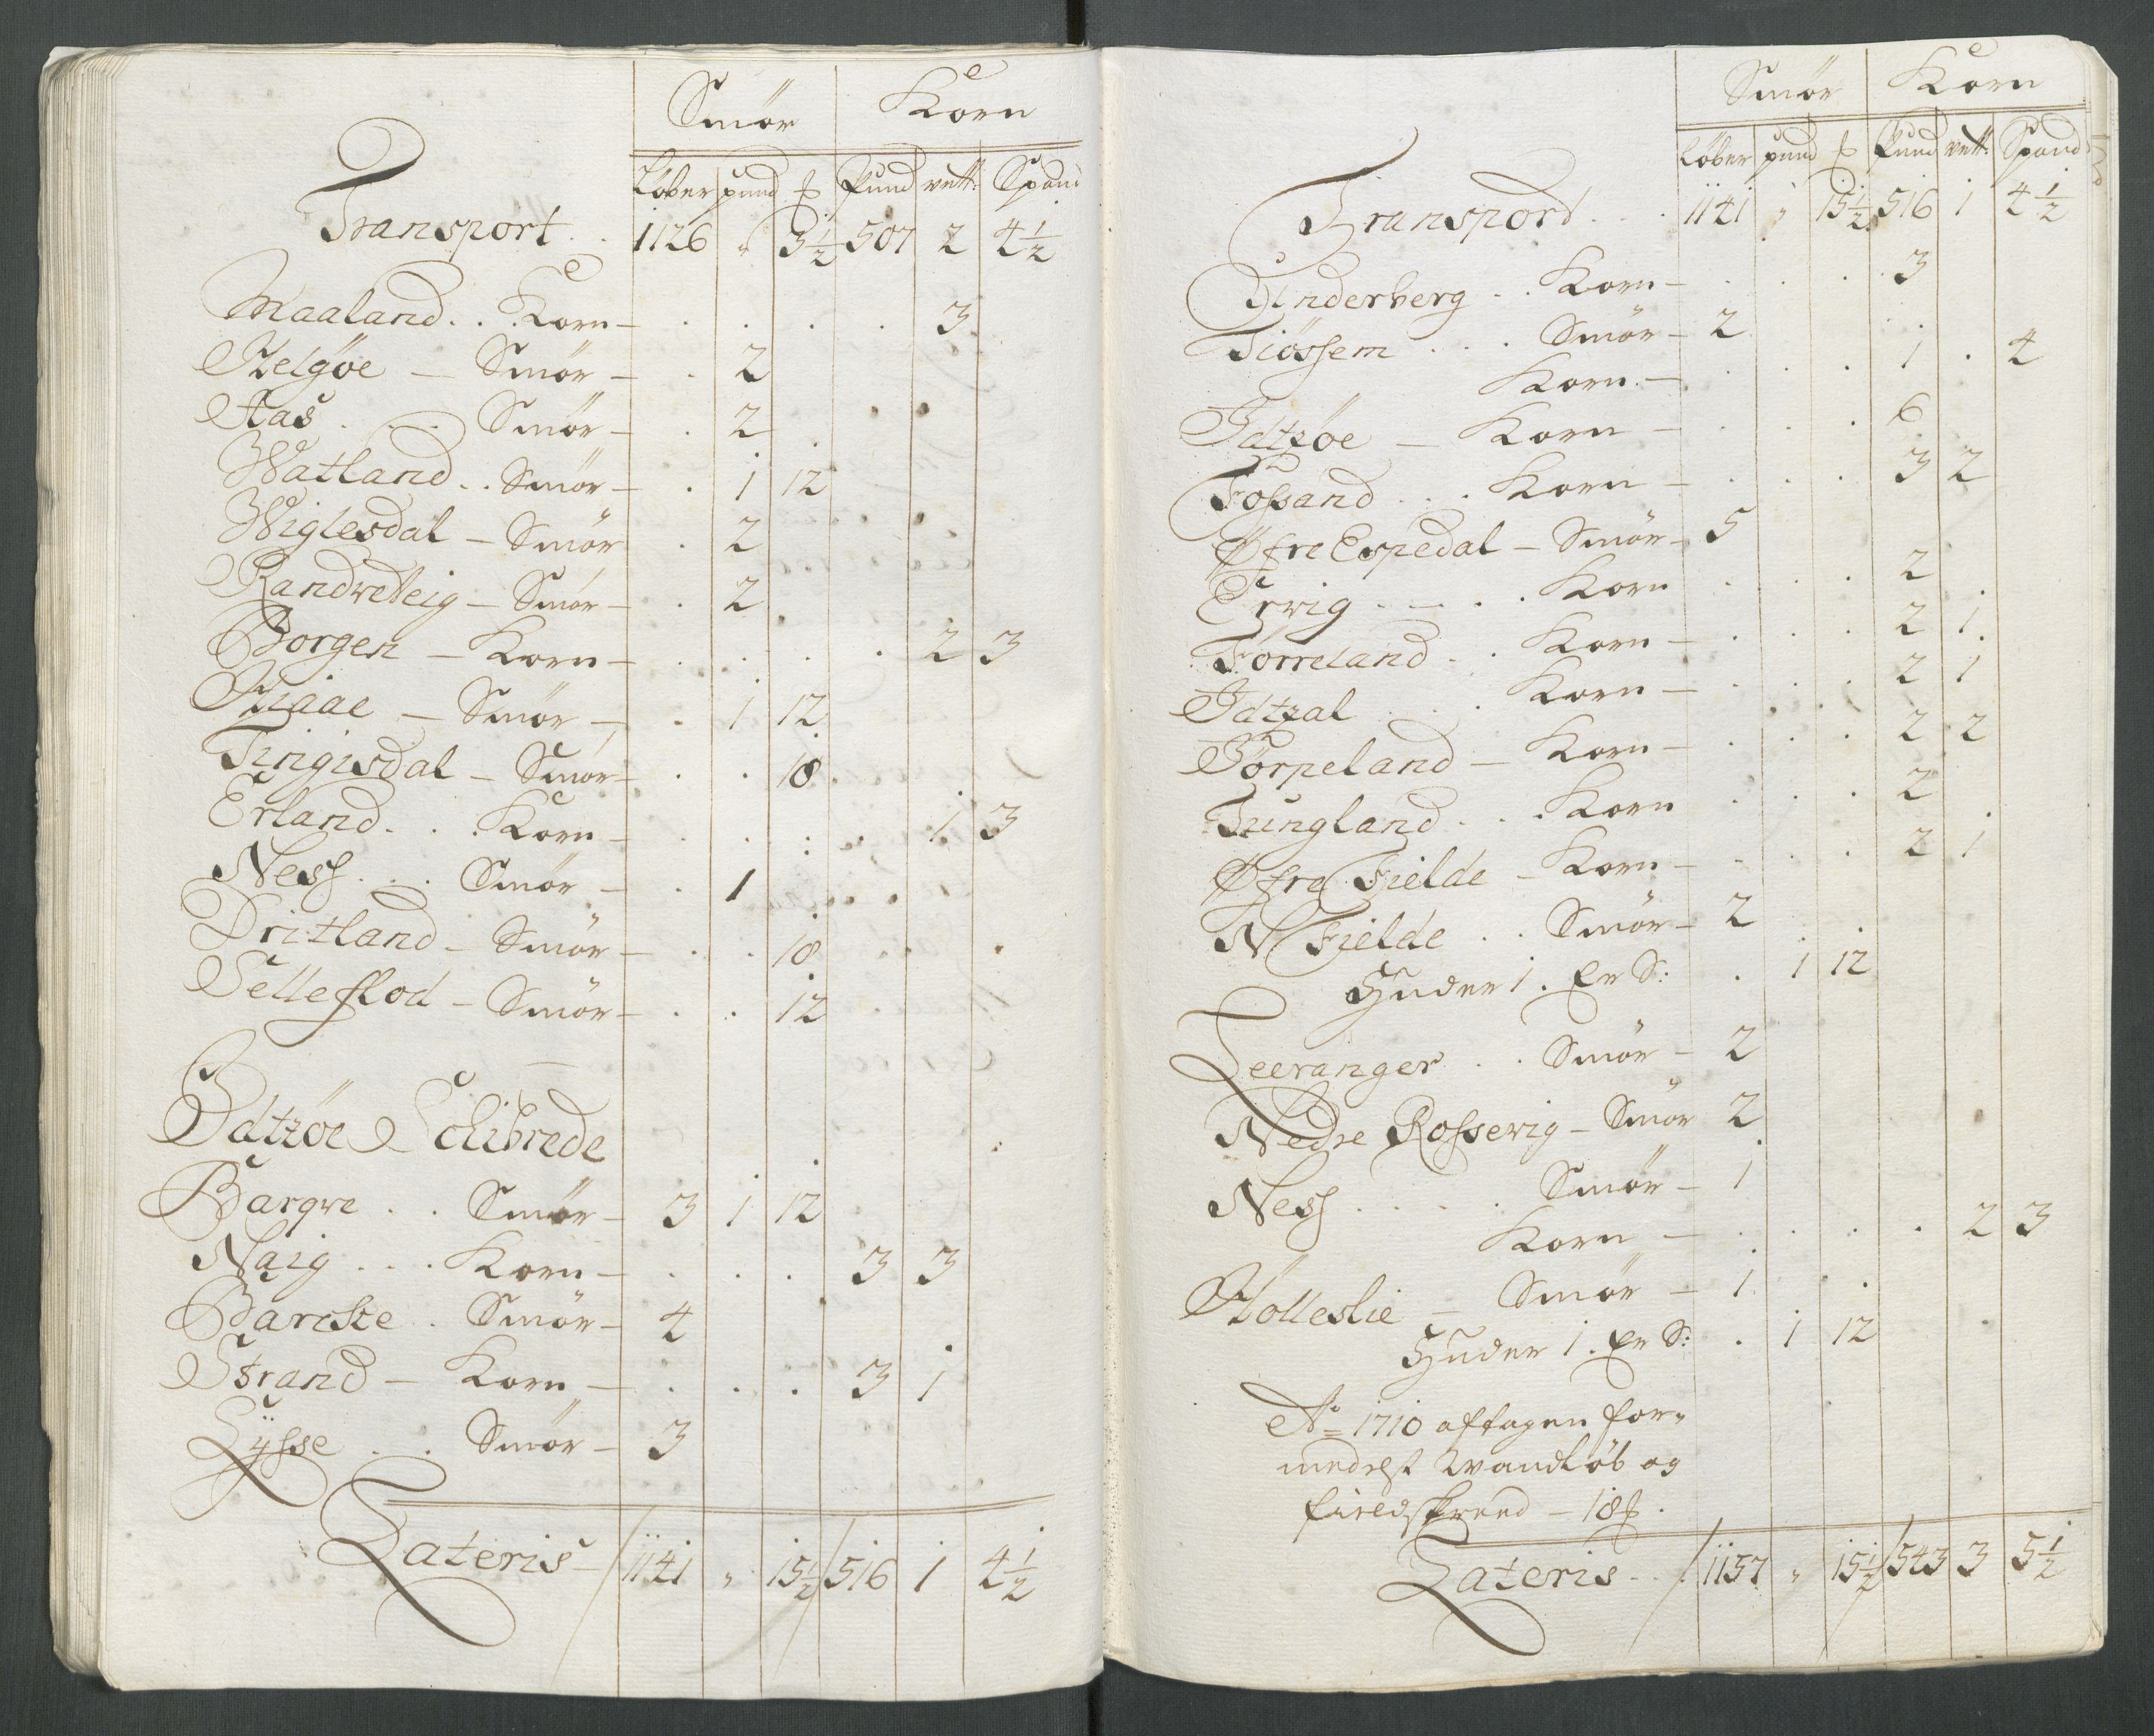 Smör Korn
Löber pund ℔ Pund vett: Spand
Transport . . 1126 " 3½ 507 2 4½
Maaland . . Korn – . . . . 3
Helgöe – Smör – . 2
Aas . . . Smör – . 2
Watland . . Smör – . 1 12
Wiglesdal – Smör . 2
Randveteig – Smör – . 2
Borgen – Korn – . . . . 2 3
Hiaae – Smör – . 1 12
Tingisdal – Smör – . . 18
Erland . . . Korn – . . . . 1 3
Ness . . . Smör – . 1
Dritland – Smör – . . 18
Selleflod – Smör – . . 12
Idtzöe Schibrede
Bargve . . Smör – 3 1 12
Naig . . . Korn – . . . 3 3
Barcke . Smör – 4
Strand – Korn – . . . 3 1
Lÿsse . . . Smör – 3
Lateris – 1141 " 15½ 516 1 4½
Smör Korn
Löber pund ℔ Pund vett: Spand
Transport . . . 1141 " 15½ 516 1 4½
Underberg . . Korn – . . . . 3
Tiössem . . . Smör – 2
Korn – . . . . 1 . 4
Idtzöe – Korn – . . . 6
Fossand . . . Korn – . . . 3 2
Øfre Espedal – Smör – 5
Ervig . – . . Korn . . . 2
Førreland . . Korn – . . . 2 1
Idtzal . . . Korn – . . . 2 1
Jörpeland – Korn – . . . 2 2
Tungland . . . Korn . . . 2
Øfre Fielde – Korn – . . . 2 1
N Fielde . . Smör – 2
Huder 1 . Er S: . 1 12
Leeranger . . Smör – 2
Nedre Rosserig – Smör 2
Ness . . . . Smör – 1
Korn – . . . . 2 3
Hölleslie – Smör – 1
Huder 1 . Er S: . 1 12
Ao 1710 aftagen for=
medelst Wandløb og
fieldskreed – 18 ℔ .
Lateris . . 1157 " 15½ 543 3 5½